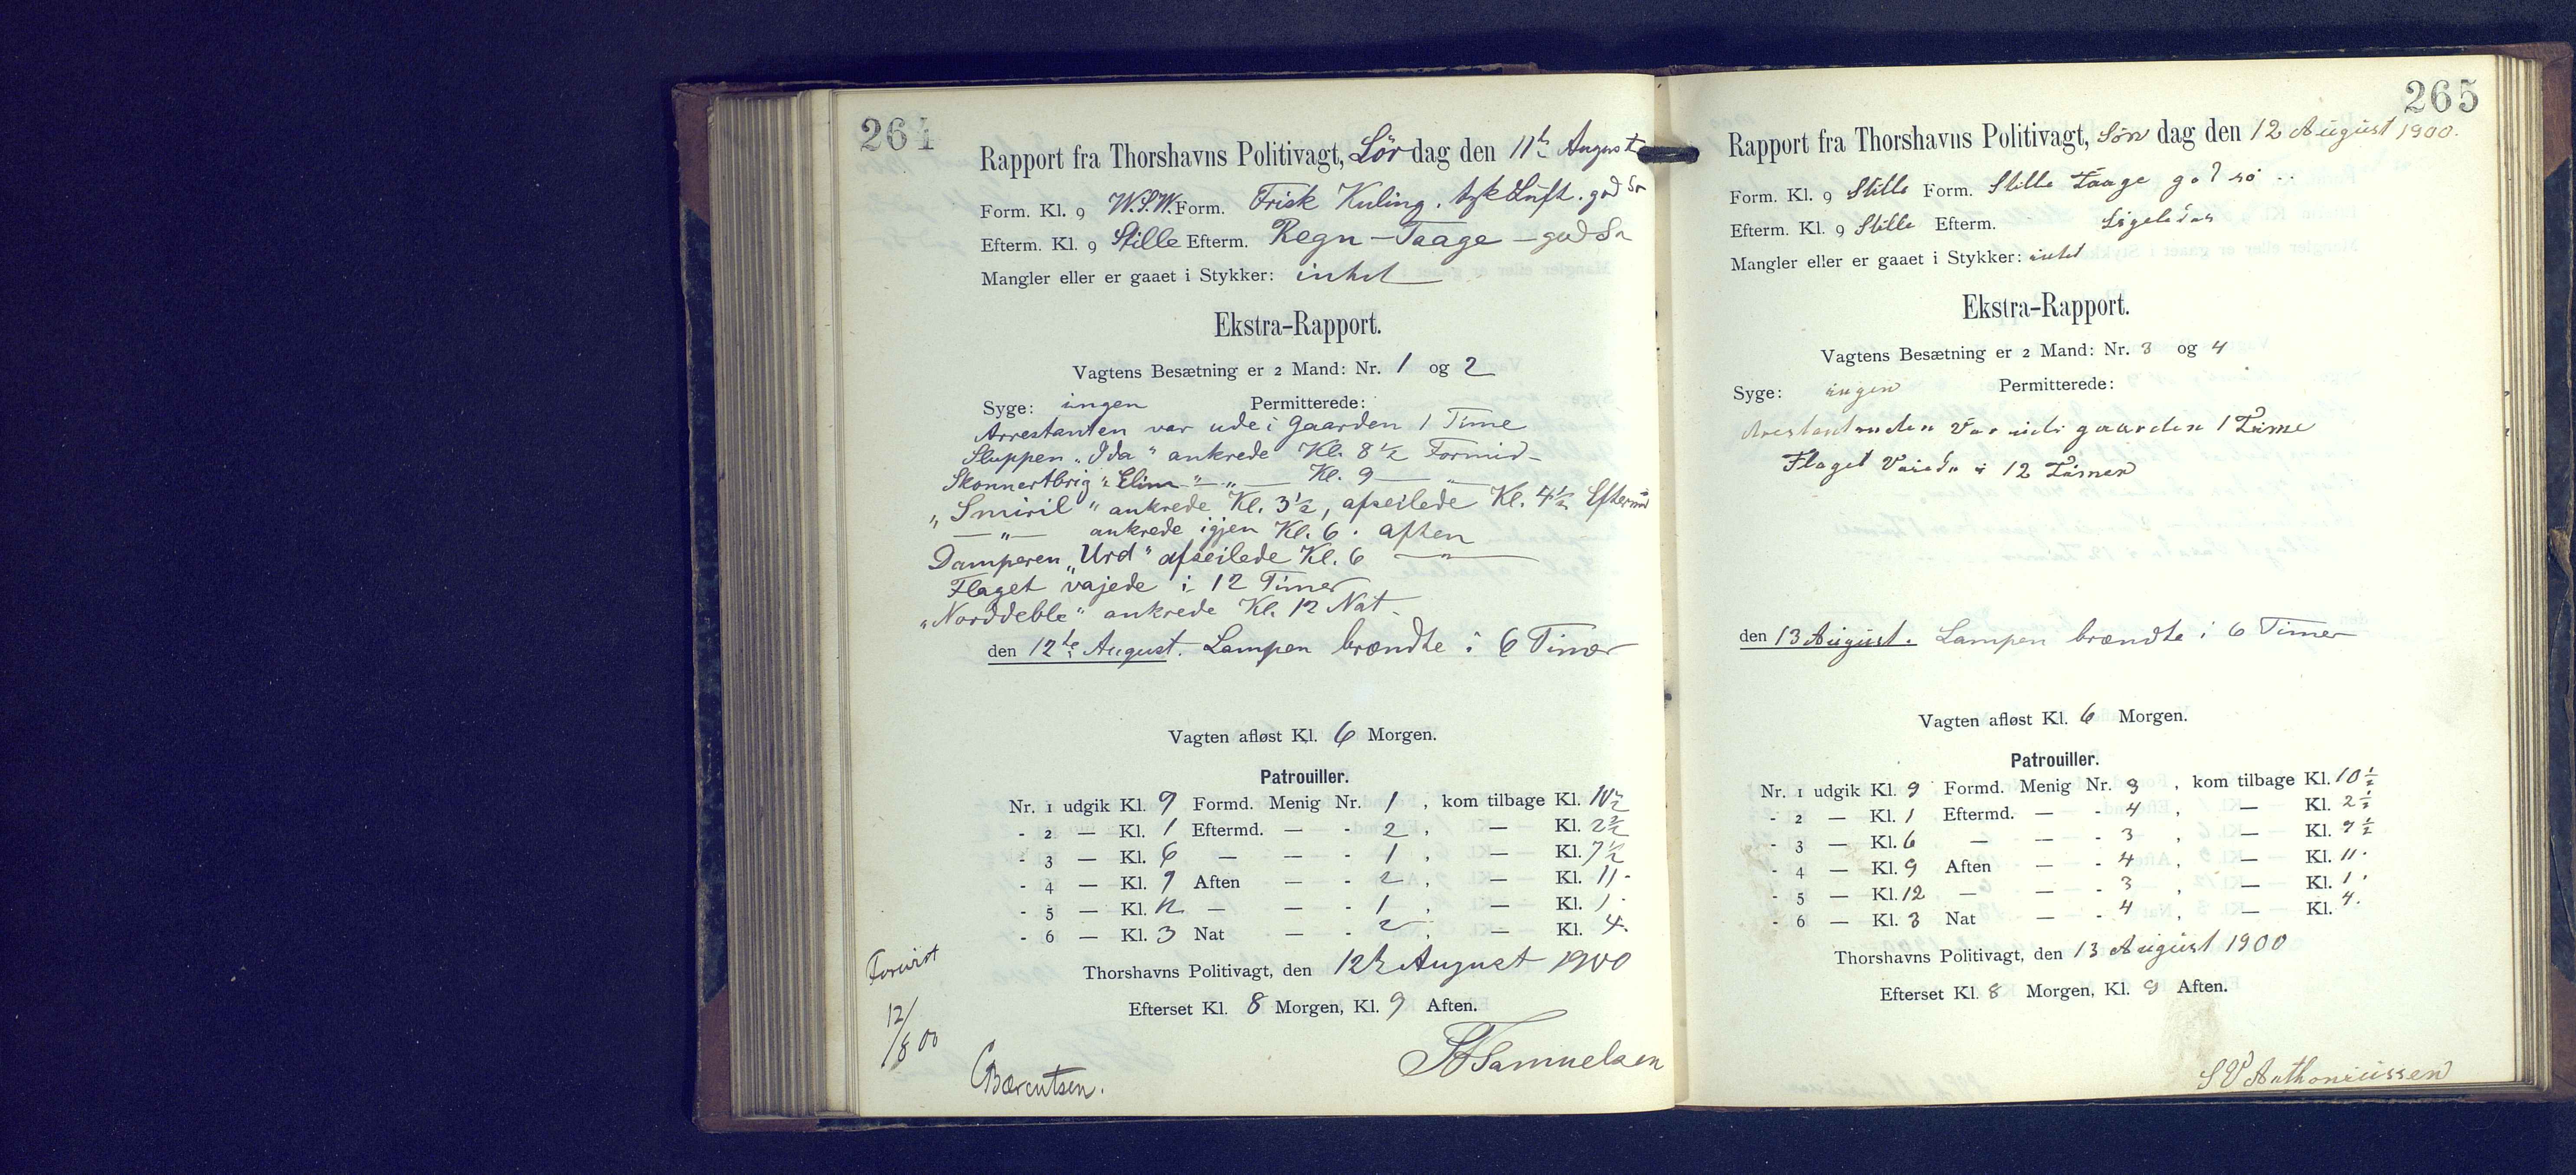 264
Rapport fra Thorshavns Politivagt, Lör dag den 11te August
Form. Kl. 9 W.S.W. Form. Frisk Kuling. tyk Luft. god Sø
Efterm. Kl. 9 Stille Efterm. Regn — Taage — god Sø
Mangler eller er gaaet i Stykker: intet
Ekstra-Rapport.
Vagtens Besætning er 2 Mand: Nr. 1 og 2
Syge: ingen Permitterede:
Arrestanten var ude i Gaarden 1 Time
Sluppen "Ida" ankrede Kl. 8 1/2 Formid-
Skonnertbrig "Elim" — " — Kl. 9 — " —
"Smiril" ankrede Kl. 3 1/2, afseilede Kl. 4 1/2 Eftermid
— " — ankrede igjen Kl. 6. aften
Damperen "Urd" afseilede Kl. 6 — " —
Flaget vajede i 12 Timer
"Norddeble" ankrede Kl. 12 Nat.
den 12te August. Lampen brændte i 6 Timer
Vagten afløst Kl. 6 Morgen.
Patrouiller.
Nr. 1 udgik Kl. 9 Formd. Menig Nr. 1, kom tilbage Kl. 10 1/2
- 2 — Kl. 1 Eftermd. — - 2, — Kl. 2 1/2
- 3 — Kl. 6 — — - 1, — Kl. 7 1/2
- 4 — Kl. 9 Aften — - 2, — Kl. 11.
- 5 — Kl. 12 — — - 1, — Kl. 1.
- 6 — Kl. 3 Nat — - 2, — Kl. 4.
Thorshavns Politivagt, den 12te August 1900
Efterset Kl. 8 Morgen, Kl. 9 Aften.
Forevist
12/8 00
CBærentsen.
Samuelsen
265
Rapport fra Thorshavns Politivagt, Søn dag den 12 August 1900.
Form. Kl. 9 Stille Form. Stille Taage god sø ..
Efterm. Kl. 9 Stille Efterm. Ligeledes
Mangler eller er gaaet i Stykker: intet
Ekstra-Rapport.
Vagtens Besætning er 2 Mand: Nr. 3 og 4
Syge: ingen Permitterede:
var ude i gaarden 1 Time
Flaget Vaiede i 12 Timer
den 13 August. Lampen brændte i 6 Timer
Vagten afløst Kl. 6 Morgen.
Patrouiller.
Nr. 1 udgik Kl. 9 Formd. Menig Nr. 3, kom tilbage Kl. 10 1/2
- 2 — Kl. 1 Eftermd. — - 4, — Kl. 2 1/2
- 3 — Kl. 6 — — - 3, — Kl. 7 1/2
- 4 — Kl. 9 Aften — - 4, — Kl. 11.
- 5 — Kl. 12 — — - 3, — Kl. 1.
- 6 — Kl. 3 Nat — - 4, — Kl. 4.
Thorshavns Politivagt, den 13 August 1900
Efterset Kl. 8 Morgen, Kl. 9 Aften.
S V Anthoniussen